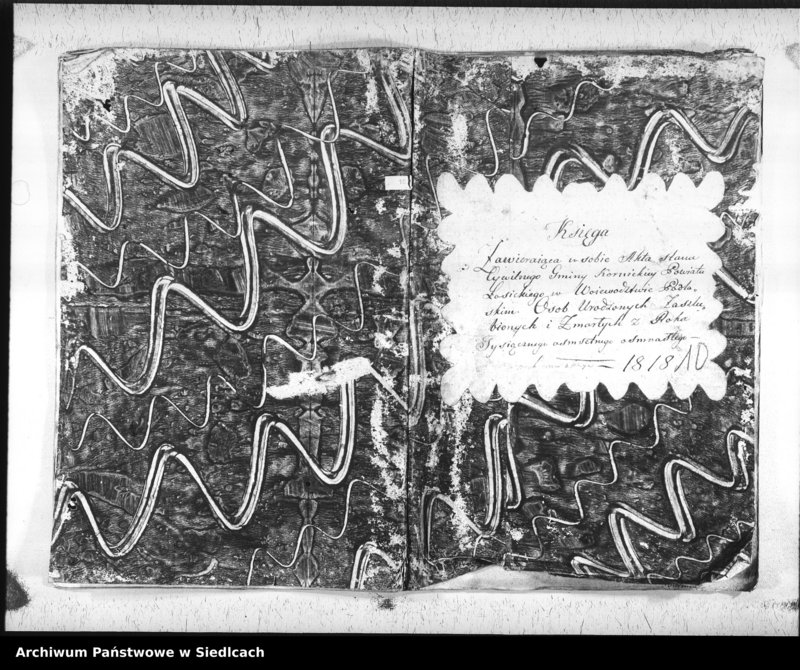 Księga
Zawierająca w sobie Akta stanu
Cywilnego Gminy Kornickiey Powiatu
Łosickiego w Woiewodztwie Podla-
skim Osob Urodzonych Zaslu-
bionych i Zmarłych z Roku
Tysiącznego osmsetnego osmnastego
1818 AD
Archiwum Państwowe w Siedlcach